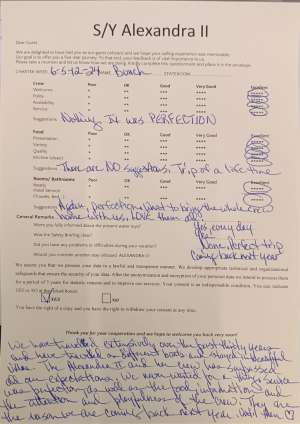 S/Y Alexandra II
Dear Guest,
We are delighted to have had you as our guest onboard and we hope your sailing experience was memorable.
Our goal is to offer you a five star journey. To that end, your feedback is of vital importance to us.
Please take a moment and let us know how we are doing. Kindly complete this questionnaire and place it in the envelope.
CHARTER WEEK: 6-5-12-24 NAME: STATEROOM:
Crew Poor OK Good Very Good Excellent
Welcome * ** *** **** *****
Polite * ** *** **** *****
Availability * ** *** **** *****
Service * ** *** **** *****
Suggestions Nothing It was PERFECTION
Food Poor OK Good Very Good Excellent
Presentation * ** *** **** *****
Variety * ** *** **** *****
Quality * ** *** **** *****
Kitchen (clean) * ** *** **** *****
Suggestions There are NO suggestions, Trip of a life time
Rooms/ Bathrooms Poor OK Good Very Good Excellent
Ready * ** *** **** *****
Hotel Service * ** *** **** *****
Suggestions perfection, Want to bring the whole crew
General Remarks home with us, LOVE them all
Were you fully informed about the present water toys? Yes, every day
Was the Safety Briefing clear? Yes
Did you have any problems or difficulties during your vacation? None, Perfect trip
Would you consider another stay onboard ALEXANDRA II? Coming back next year
We assure you that we process your data in a lawful and transparent manner. We develop appropriate technical and organizational
safeguards that ensure the security of your data. After the pseudonymization and encryption of your personal data we intend to process them
for a period of 7 years for statistic reasons and to improve our services. Your consent is an indispensable condition. You can indicate
YES or NO at the related boxes.
YES NO
You have the right of a copy and you have the right to withdraw your consent at any time.
Thank you for your cooperation and we hope to welcome you back very soon!!
We have traveled extensively over the past thirty years
and have traveled on different boats and stayed in beautiful
villas. The Alexandra II and her crew has surpassed
all our expectations. We never wanted for a thing, service
was perfection as well as the food, information and
the attention and playfulness of the crew. They are
the reason we are coming back next year. Until then ♡